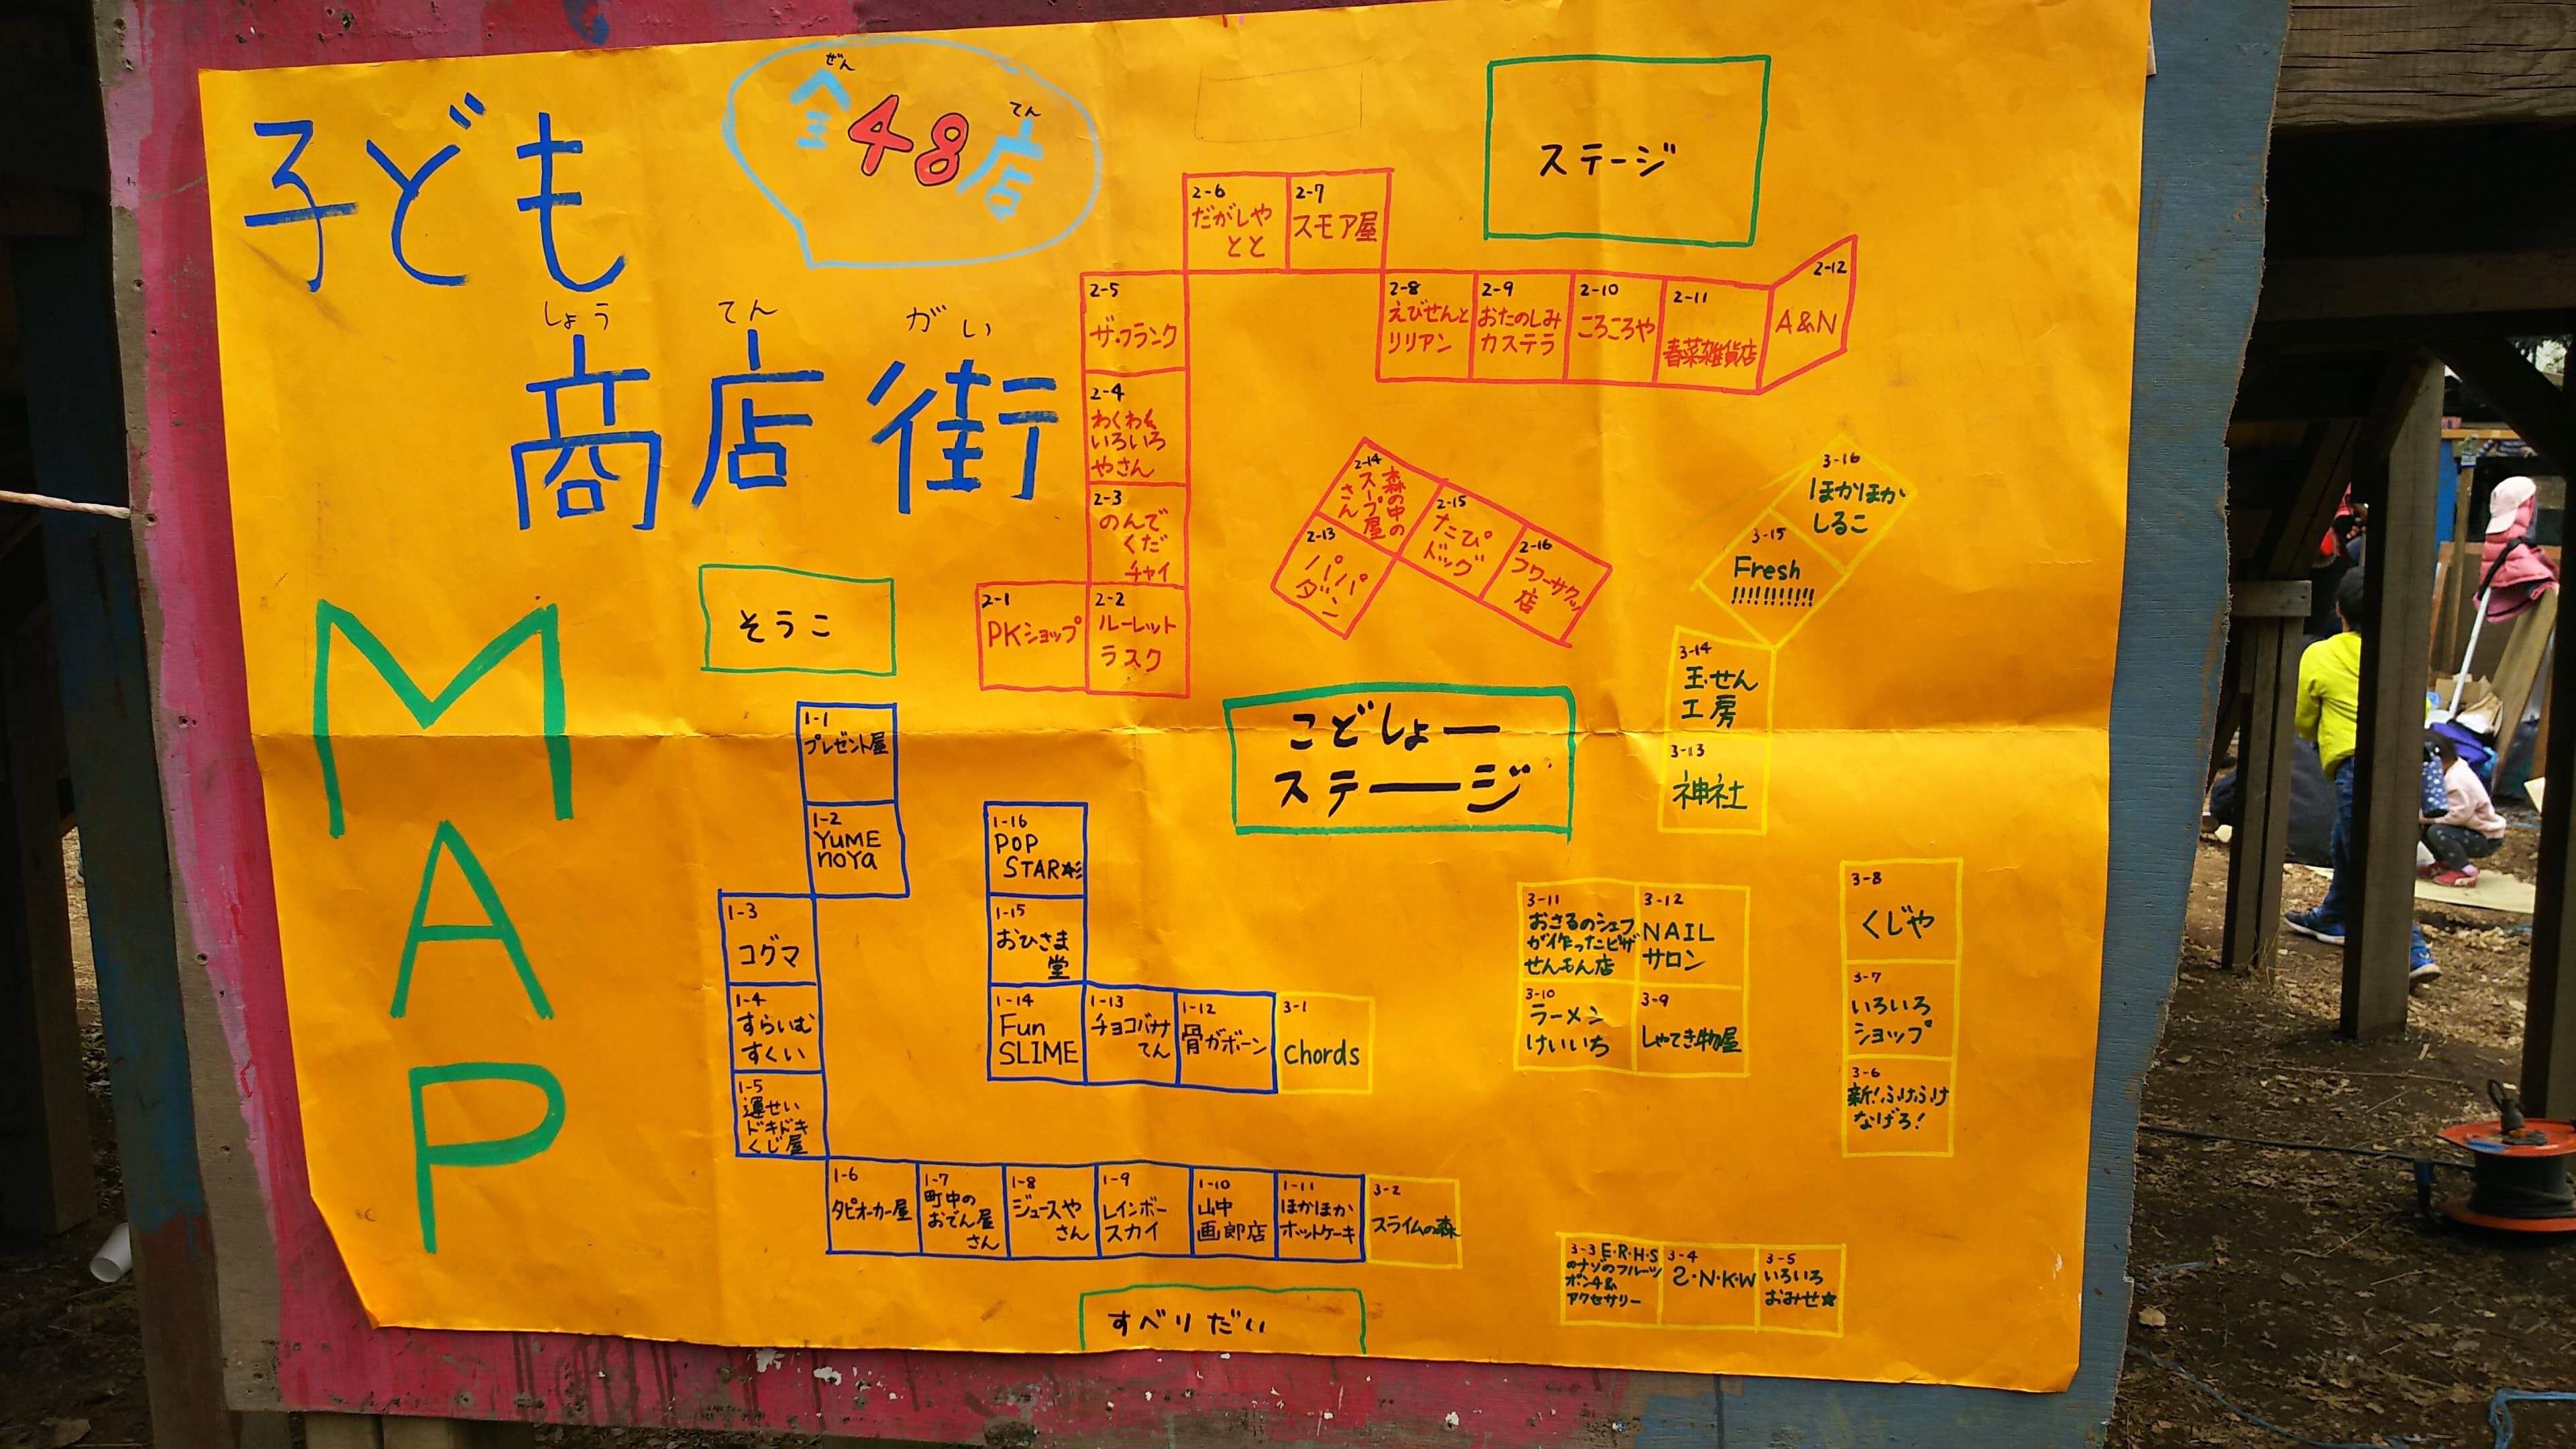 子ども
しょう てん がい
商店街
MAP
ぜん てん
全48店
ステージ
2-6
だがしや
とと
2-7
スモア屋
2-5
ザ・フランク
2-4
わくわく
いろいろ
やさん
2-3
のんで
くだ
チャイ
2-1
PKショップ
2-2
ルーレット
ラスク
2-8
えびせんと
リリアン
2-9
おたのしみ
カステラ
2-10
ころころや
2-11
春菜雑貨店
2-12
A&N
2-14
森の中の
スープ屋
さん
2-13
パパ
ダン
2-15
たこぴ
ドッグ
2-16
店
3-16
ほかほか
しるこ
3-15
Fresh
!!!!!!!!!!!
3-14
玉せん
工房
3-13
神社
そうこ
こどしょー
ステージ
1-1
プレゼント屋
1-2
YUME
noYa
1-3
コグマ
1-4
すらいむ
すくい
1-5
運せい
ドキドキ
くじ屋
1-16
POP
STAR☆彡
1-15
おひさま
堂
1-14
Fun
SLIME
1-13
チョコバナナ
てん
1-12
骨ガボーン
3-1
Chords
1-6
タピオーカー屋
1-7
町中の
おでん屋
さん
1-8
ジュースや
さん
1-9
レインボー
スカイ
1-10
山中
画郎店
1-11
ほかほか
ホットケーキ
3-2
スライムの森
3-11
おさるのシェフ
が作ったピザ
せんもん店
3-12
NAIL
サロン
3-10
ラーメン
けいいち
3-9
しゃてき物屋
3-8
くじや
3-7
いろいろ
ショップ
3-6
新!ふけふけ
なげろ!
3-3 E・R・H・S
のナゾのフルーツ
ポンチ&
アクセサリー
3-4
2・N・K・W
3-5
いろいろ
おみせ☆
すべりだい